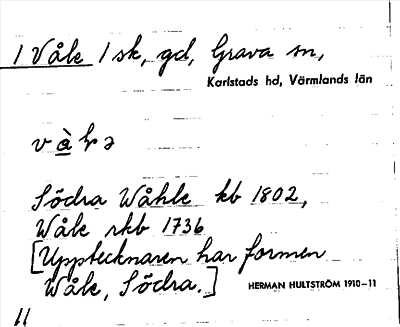 / Våle / sk, gd, Grava sn,
Karlstads hd, Värmlands län
Södra Wåhle kb 1802,
Wåle skb 1736
[Upptecknaren har formen
Wåle, Södra.]
HERMAN HULTSTRÖM 1910-11